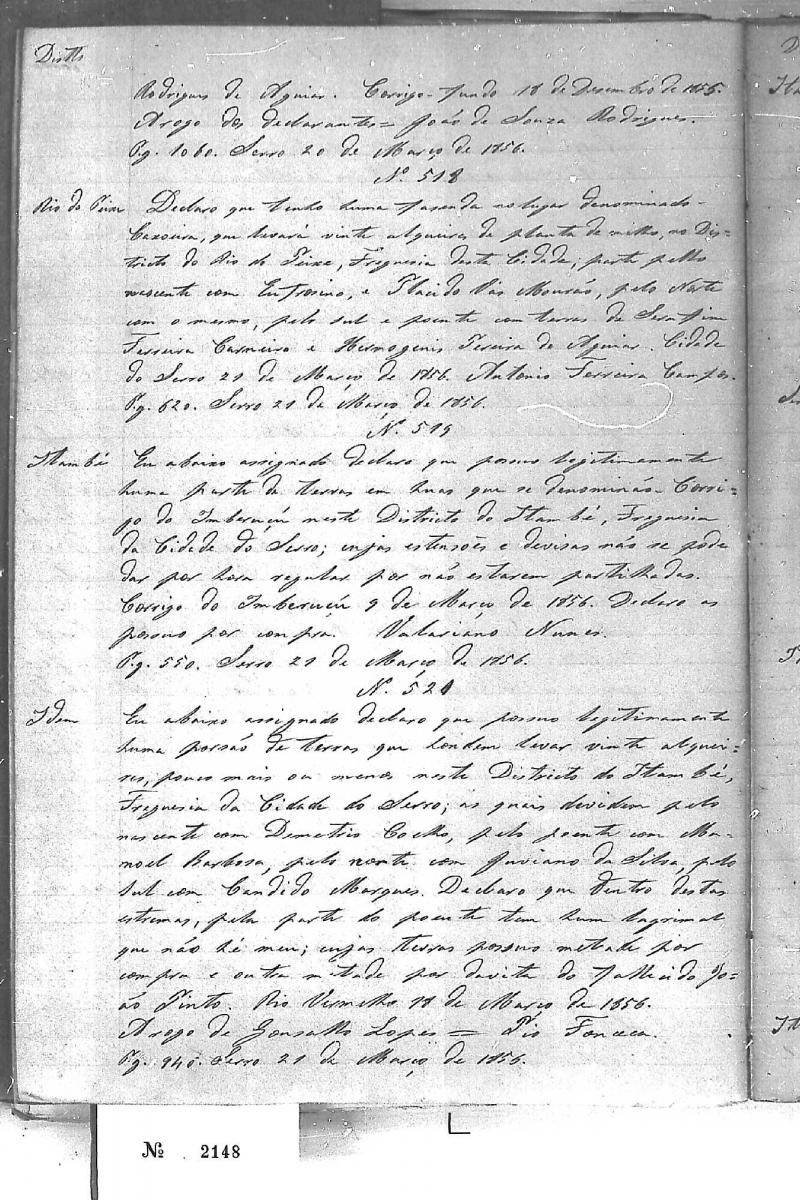 Distto
Rodrigues de Aguiar. Corrigo-fundo 18 de Desembro de 1855.
Arogo dos declarantes = João de Souza Rodrigues.
Pg. 1060. Serro 20 de Março de 1856.
Nº 518
Rio do Peixe Declaro que tenho huma fasenda no lugar denominado
Caxoeira, que levará vinte alqueires de planta de milho, no Dis=
tricto do Rio do Peixe, Freguesia desta Cidade; parte pello
nascente com Eufrosino, e Placido Vas Mourão, pelo Norte
com o mesmo, pelo sul e poente com terras de Serafim
Ferreira Carneiro e Hermogenis Pereira de Aguiar. Cidade
do Serro 21 de Março de 1856. Antonio Ferreira Campos.
Pg. 620. Serro 21 de Março de 1856.
Nº 519
Itambé Eu abaixo assignado declaro que possuo legitimamente
huma parte de terras em huas que se denominão Corri=
go do Imberuçú neste Districto do Itambé, Freguesia
da Cidade do Serro; cujas estensões e devisas não se pode
dar por hora regular por não estarem partilhadas.
Corrigo do Imberuçú 9 de Março de 1856. Declaro as
possuo por compra. Valariano Nunes.
Pg. 550. Serro 21 de Março de 1856.
N. 520
Idem Eu abaixo assignado declaro que possuo legitimamente
huma porsão de terras que podem levar vinte alquei=
res, pouco mais ou menos neste Districto do Itambé,
Freguesia da Cidade do Serro; as quais dividem pelo
nascente com Demetrio Coelho, pelo poente com Ma=
noel Barbosa, pelo norte com Juviano da Silva, pelo
sul com Candido Marques. Declaro que dentro destas
estremas, pela parte do poente tem hum lagrimal
que não hé meu; cujas terras possuo metade por
compra e outra metade por davita do fallecido Jo=
ão Pinto. Rio Vermelho 18 de Março de 1856.
Arogo de Gonsallo Lopes = Pio Fonceca.
Pg. 940. Serro 21 de Março de 1856.
Nº 2148